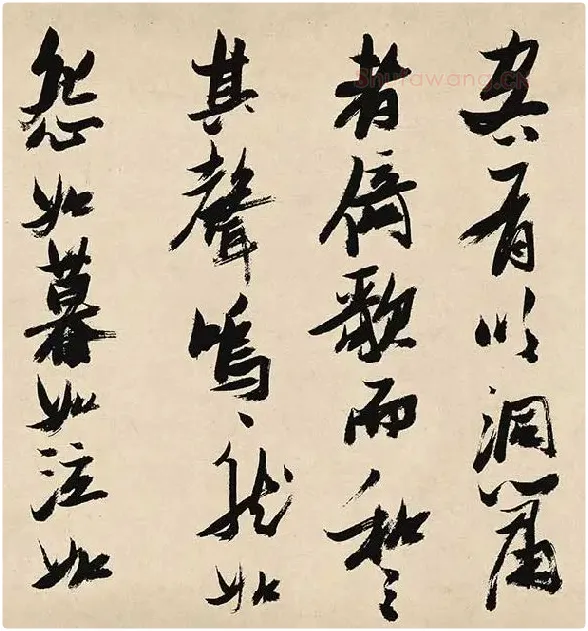 客有吹洞簫
者倚歌而和之
其聲嗚〻然如
怨如慕如泣如
Shufawang.cn